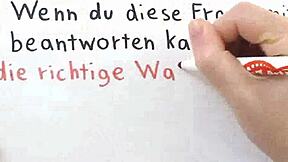 Wenn du diese
beantworten
die richtige Wa